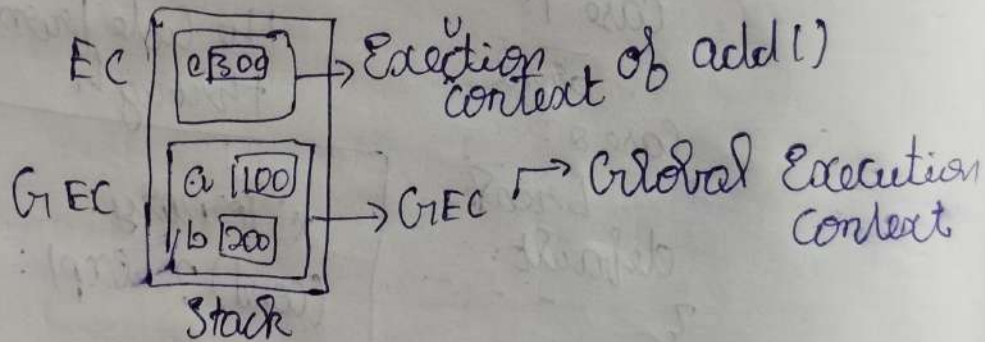 EC c 300 → Exection u context of add()
GEC a 100 b 200 → GEC → Global Execution context
Stack